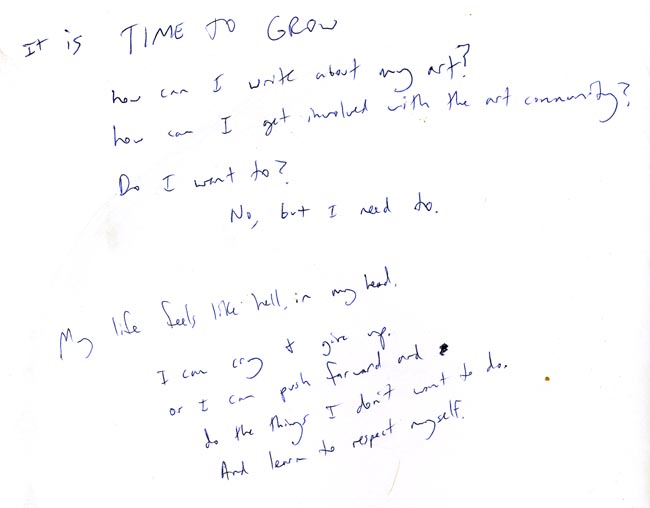 It is TIME TO GROW
how can I write about my art?
how can I get involved with the art community?
Do I want to?
No, but I need to.
My life feels like hell, in my head.
I can cry & give up.
or I can push forward and
do the things I don't want to do.
And learn to respect myself.